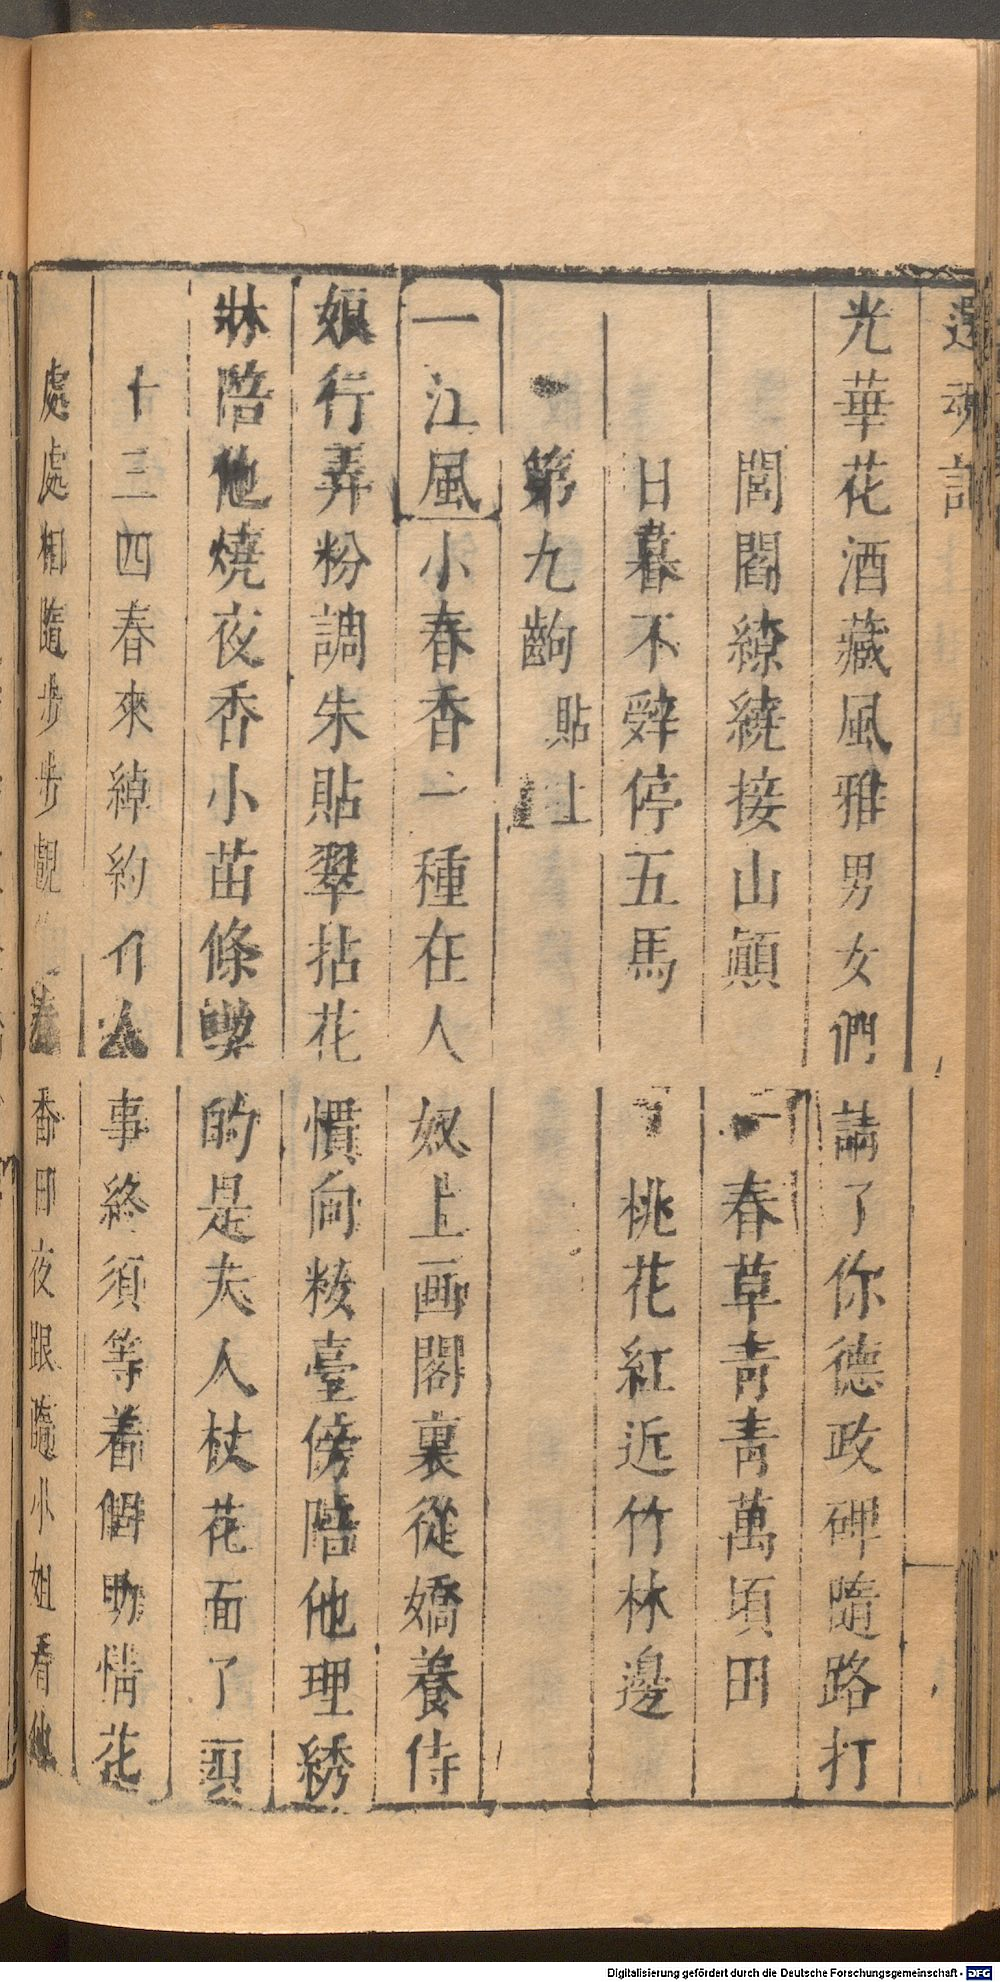 還魂記
光華花酒藏風雅男女們請了你德政碑隨路打
閭閻繚繞接山巔春草青青萬頃田
日暮不辤停五馬桃花紅近竹林邊
第九齣 貼上
一江風小春香一種在人奴上画閣裏從嬌養侍
娘行弄粉調朱貼翠拈花慣向粧臺傍陪他理綉
牀陪他燒夜香小苗條喫的是夫人杖花面了頭
十三四春來綽約人事終須等着個助情花
處處相隨步步覷春香日夜跟隨小姐看他
Digitalisierung gefördert durch die Deutsche Forschungsgemeinschaft - DFG